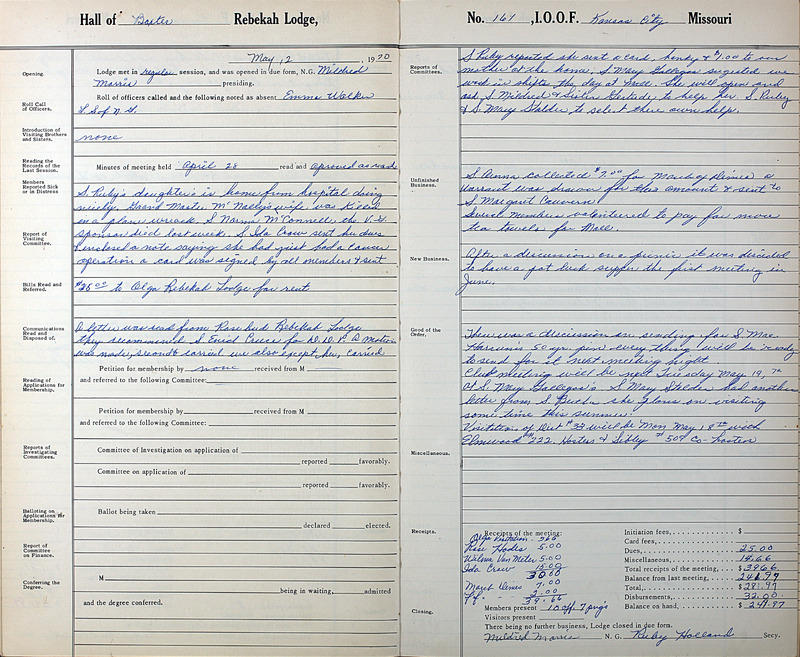 Hall of Baxter Rebekah Lodge,
May 12 1970
Opening.
Lodge met in regular session, and was opened in due form, N.G. Mildred
Morris presiding.
Roll Call of Officers.
Roll of officers called and the following noted as absent Emma Walker
Introduction of Visiting Brothers and Sisters.
none
Reading the Records of the Last Session.
Minutes of meeting held April 28 read and aproved as read
Members Reported Sick or in Distress
S. Ruby's daughter is home from hospital doing
nicely. Grand Master McNally's wife was killed
in a plane wreck. S Norma McConnell, the V.G.
Report of Visiting Committee.
sponsor died last week. S Ida Crow sent her dues
& enclosed a note saying she had just had a cancer
operation a card was signed by all members & sent
Bills Read and Referred.
$25.00 to Olga Rebekah Lodge for rent
Communications Read and Disposed of.
A letter was read from Rose bud Rebekah Lodge
they recommend S Enid for D.D.P. A Motion
was made, second & carried we also except her, carried
Petition for membership by none received from M
Reading of Applications for Membership.
and referred to the following Committee:
Petition for membership by received from M
and referred to the following Committee:
Reports of Investigating Committees.
Committee of Investigation on application of
reported favorably.
Committee on application of
reported favorably.
Balloting on Applications for Membership.
Ballot being taken
declared elected.
Report of Committee on Finance.
Conferring the Degree.
M
being in waiting, admitted
and the degree conferred.
No. 161, I.O.O.F. Kansas City Missouri
Reports of Committees.
S Ruby reported she sent a card, hanky & $1.00 to our
mother at the home. S May Gallegos sugested we
work in shifts the day at Mall. She will open and
ask S Mildred & Sister Gertrude to help her. S Ruby
& S Mary Stelder to select there own help.
Unfinished Business.
S Anna collected $7.00 for March of Dimes a
warrant was drawn for this amount & sent to
S Margaret
members volentered to pay for more
tea towels for Mall.
New Business.
After a discussion on a picnic it was decided
to have a pot luck supper the first meeting in
June.
Good of the Order.
There was a discission on sending for S Mae
50 yr. pin every thing will be ready
to send for it next meeting night
Club meeting will be next Tuesday May 19,
At S. May Gallegos's S May Stelder had another
letter from S she plans on visiting
some time this summer.
Visitation of Dist #33 will be Mon May 18th with
Elmwood #222. Hostess & Sibley #504 Co-hostess
Miscellaneous.
Receipts.
Receipts of the meeting:
Olga Visitation 7.66
Rose Hodes 5.00
Wilma Van Meter 5.00
Ida Crow 15.00
30.00
March Dimes 7.00
2.00
39.66
Members present 10 off 7 pvgs
Visitors present
Initiation fees, $
Card fees,
Dues, 25.00
Miscellaneous, 14.66
Total receipts of the meeting, $ 39.66
Balance from last meeting,
Total, $
Disbursements, 32.00
Balance on hand, $
Closing.
There being no further business, Lodge closed in due form.
Mildred Morris N. G. Ruby Holland Secy.